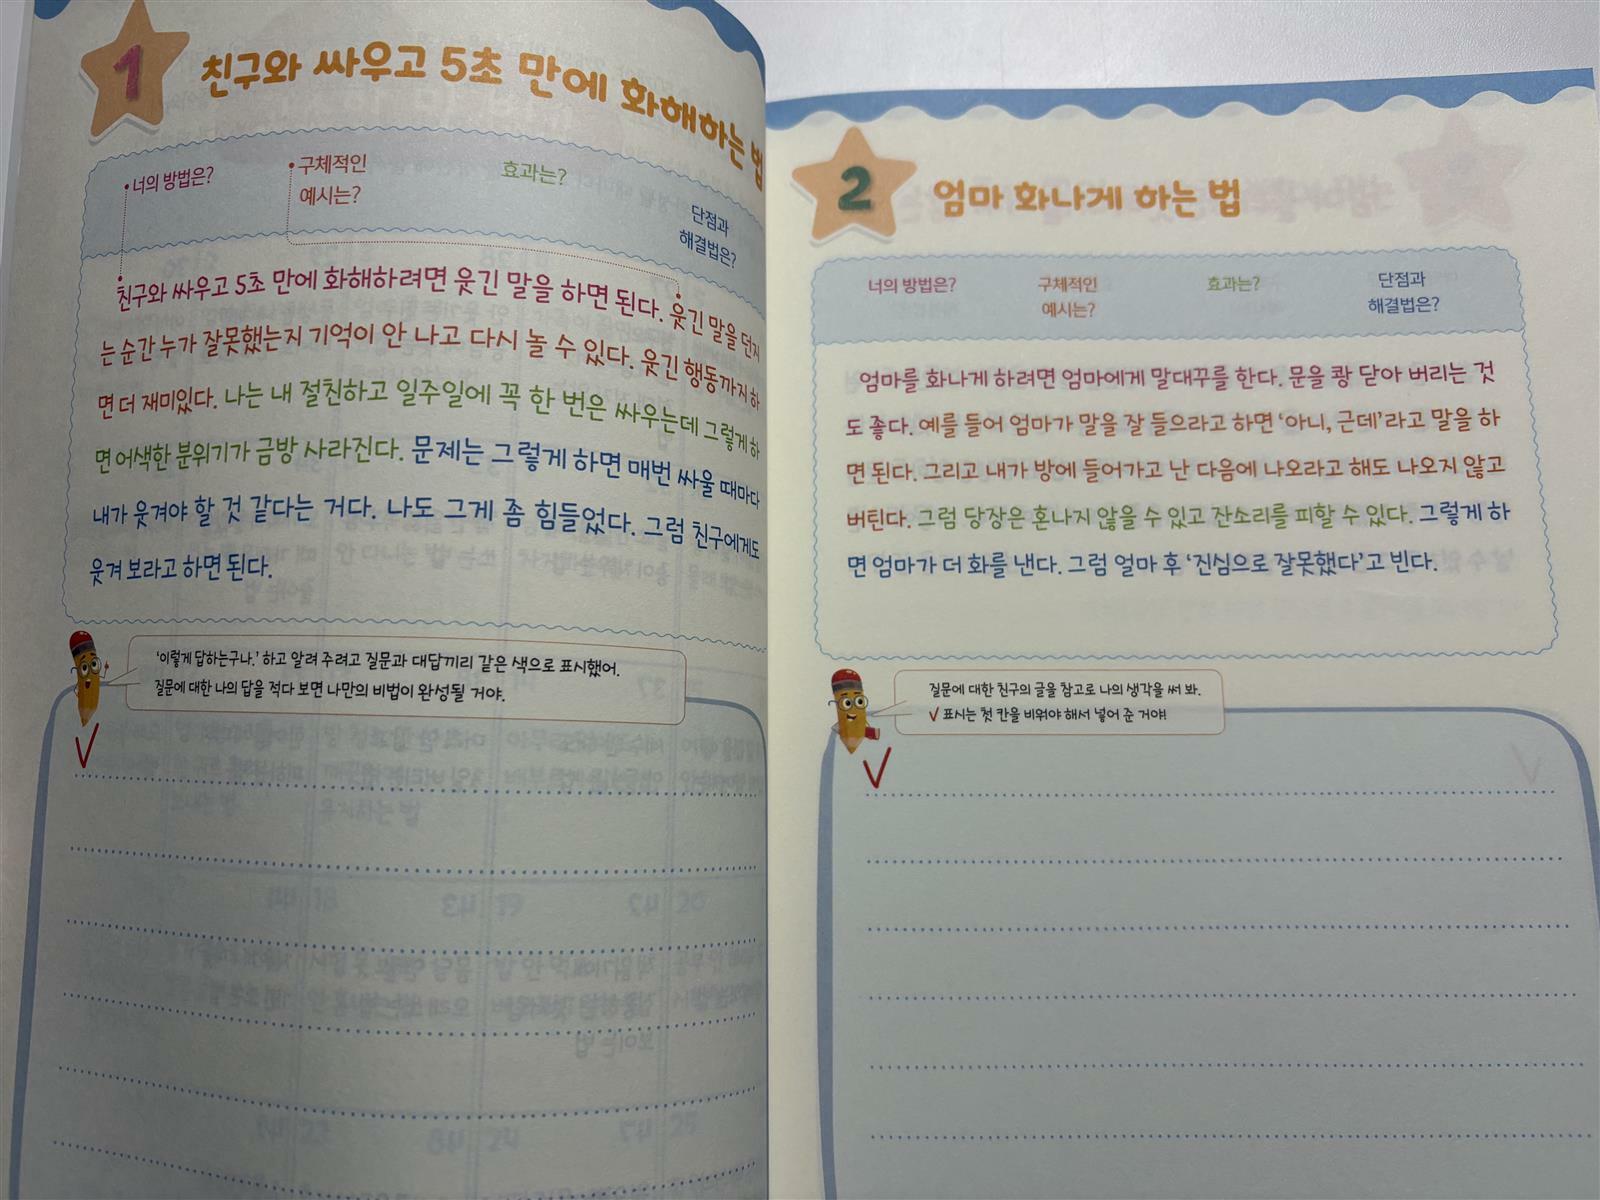 1
친구와 싸우고 5초 만에 화해하는 법
너의 방법은?
구체적인
예시는?
효과는?
단점과
해결법은?
친구와 싸우고 5초 만에 화해하려면 웃긴 말을 하면 된다. 웃긴 말을 던지
는 순간 누가 잘못했는지 기억이 안 나고 다시 놀 수 있다. 웃긴 행동까지 하
면 더 재미있다. 나는 내 절친하고 일주일에 꼭 한 번은 싸우는데 그렇게 하
면 어색한 분위기가 금방 사라진다. 문제는 그렇게 하면 매번 싸울 때마다
내가 웃겨야 할 것 같다는 거다. 나도 그게 좀 힘들었다. 그럼 친구에게도
웃겨 보라고 하면 된다.
'이렇게 답하는구나.' 하고 알려 주려고 질문과 대답끼리 같은 색으로 표시했어.
질문에 대한 나의 답을 적다 보면 나만의 비법이 완성될 거야.
2
엄마 화나게 하는 법
너의 방법은?
구체적인
예시는?
효과는?
단점과
해결법은?
엄마를 화나게 하려면 엄마에게 말대꾸를 한다. 문을 쾅 닫아 버리는 것
도 좋다. 예를 들어 엄마가 말을 잘 들으라고 하면 '아니, 근데'라고 말을 하
면 된다. 그리고 내가 방에 들어가고 난 다음에 나오라고 해도 나오지 않고
버틴다. 그럼 당장은 혼나지 않을 수 있고 잔소리를 피할 수 있다. 그렇게 하
면 엄마가 더 화를 낸다. 그럼 얼마 후 '진심으로 잘못했다'고 빈다.
질문에 대한 친구의 글을 참고로 나의 생각을 써 봐.
√ 표시는 첫 칸을 비워야 해서 넣어 준 거야!